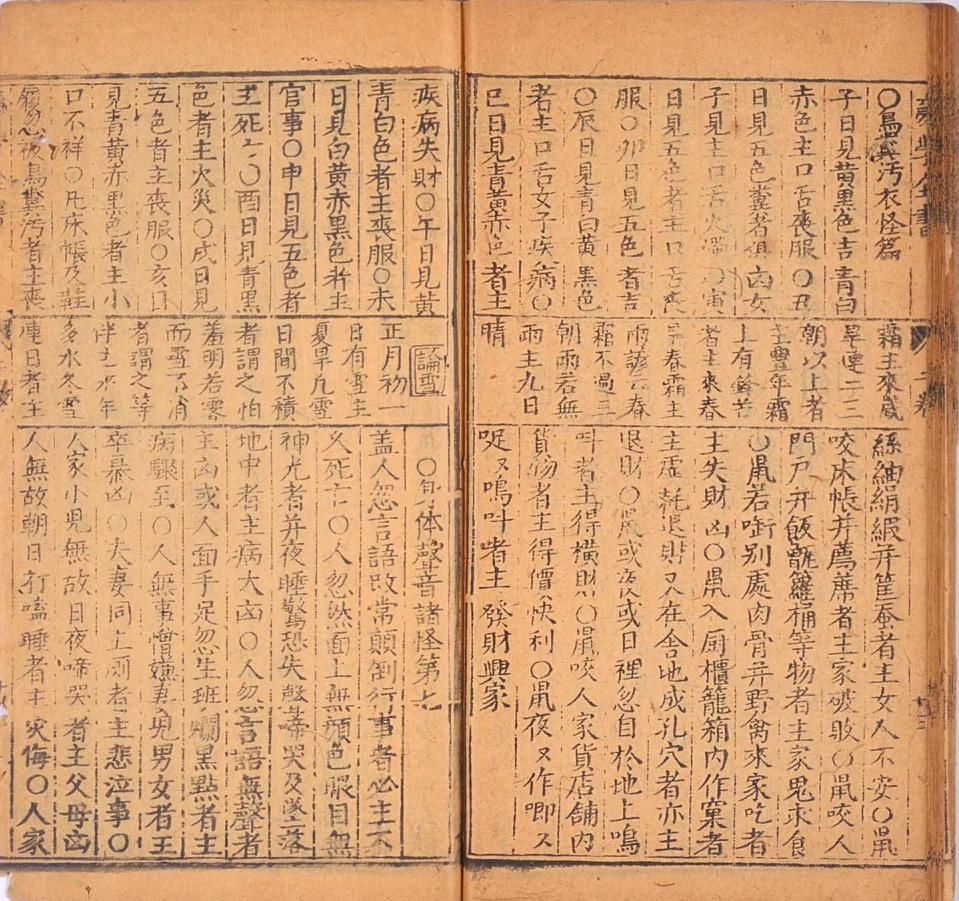 ○鳥糞汚衣怪篇
子日見黃黑色吉青白
赤色主口舌喪服○丑
日見五色糞者俱凶女
子見主口舌火○寅
日見五色者主口舌喪
服○卯日見五色者吉
○辰日見青白黃黑色
者主口舌女子疾病○
巳日見青黃赤色者主
霜主來歲
旱連二三
朝以上者
主豐年霜
上有鋒芒
者主來春
旱春霜主
雨諺云春
霜不過三
朝雨若無
雨主九日
晴
絲紬絹緞并筐蚕者主女人不安○鼠
咬床帳并薦蓆者主家破敗○鼠咬人
門戶并飯甑籮桶等物者主家鬼求食
○鼠若啣别處肉骨并野禽來家吃者
主失財凶○鼠入厨櫃籠箱内作窠者
主虛耗退財又在舍地成孔穴者亦主
退財○鼠或夜或日裡忽自於地上鳴
叫者主得橫財○鼠咬人家貨店舖内
貨物者主得價快利○鼠夜又作唧又
哫又鳴叫者主發財興家
疾病失財○午日見黃
青白色者主喪服○未
日見白黃赤黑色者主
官事○申日見五色者
主死亡○酉日見青黑
色者主火災○戌日見
五色者主喪服○亥日
見青黃赤黑色者主小
口不祥○凡床帳及鞋
忽被鳥糞汚者主喪
論雪
正月初一
日有雪主
夏旱凡雪
日間不積
者謂之怕
羞明若霽
而雪不消
者謂之等
伴主來年
多水冬雪
連日者主
○身体聲音諸怪第七
盖人忽言語改常顛倒行事者必主不
久死亡○人忽然面上無顏色眼目無
神光者并夜睡驚恐失聲啼哭及墜落
地中者主病大凶○人忽言語無聲者
主凶或人面手足忽生班爛黑點者主
病驟至○人無事憎嫌妻兒男女者主
卒暴凶○夫妻同上厠者主悲泣事○
人家小児無故日夜啼哭者主父母凶
人無故朝日打嗑睡者主災侮○人家